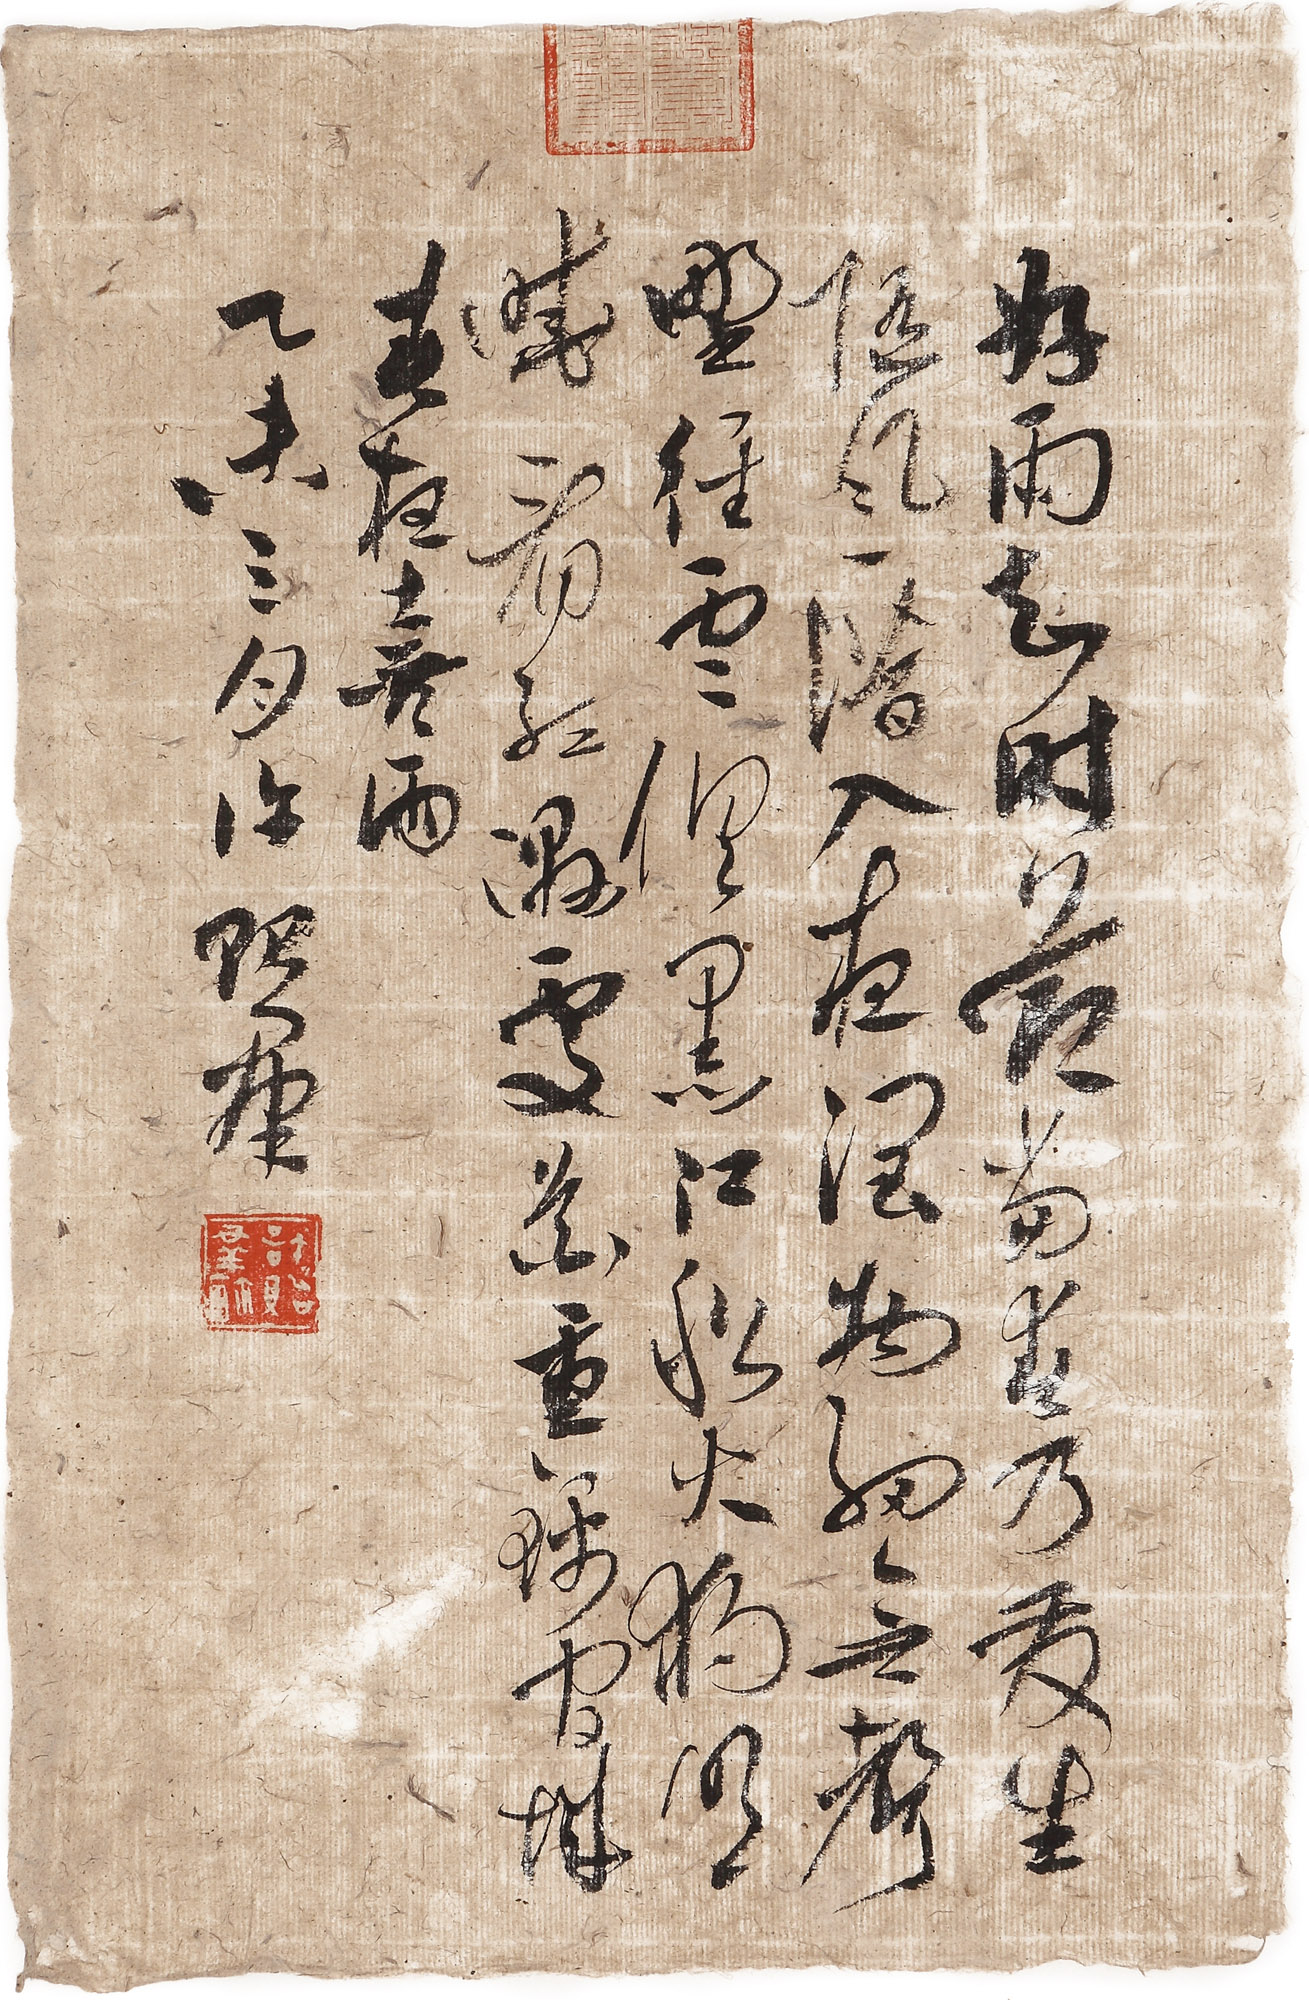 好雨知时節當春乃發生
隨風潛入夜潤物細無聲
野徑雲俱黑江船火獨明
曉看紅濕處花重錦官城
春夜喜雨
乙未三月許